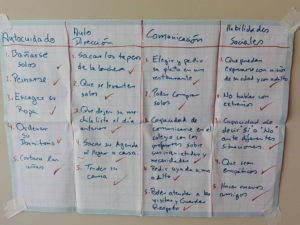 Autocuidado
1. Bañarse
solos
2. Peinarse
3. Escoger su
Ropa
4. Ordenar
su
Dormitorio
5. Cortarse las
uñas
Auto
Dirección
1. Sacar los topers
de la lonchera
2. Que se levanten
solos
3. Que dejen su mo-
chila lista el día
anterior
4. Sacar su Agenda
al llegar a casa.
5. Tender su
cama
Comunicación
1. Elegir y pedir
su plato en un
restaurante
2. Saber comprar
solos
3. Capacidad de
comunicarse en el
colegio con los
profesores sobre
sus inquietudes y
necesidades
4. Pedir ayuda a un
adulto
5. Poder atender a las
visitas y Guardar
Respeto
Habilidades
Sociales
1. Que puedan
expresarse con niños
de su edad y con adultos
2. No hablar con
extraños
3. Capacidad de
decir Sí o No
ante diferentes
situaciones.
4. Que sean
empáticos
5. Hacer nuevos
amigos